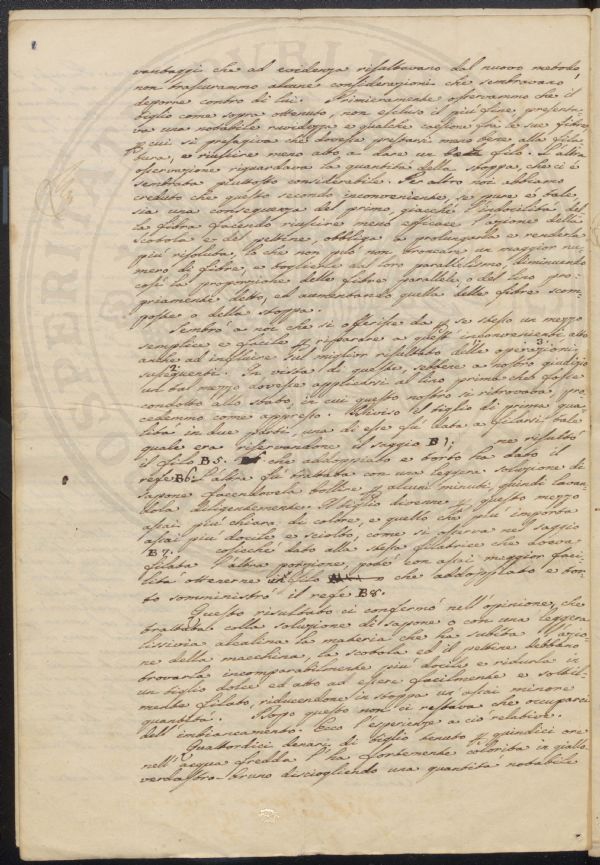 vantaggi che ad evidenza risultavano dal nuovo metodo,
non trascurammo alcune considerazioni che sembravano
deporre contro di lui. Primieramente osservammo che il
tiglio come sopra ottenuto, non escluso il più fine, presenta-
va una notabile ruvidezza e qualche coesione fra le sue fibre
p cui si presagiva che dovesse prestarsi meno bene alla fila
tura, e riuscire meno atto a dare un bel filo. L'altra
osservazione riguardava la quantità della stoppa, che ci è
sembrata piuttosto considerabile. Per altro noi abbiamo
creduto che questo secondo inconveniente, se pure è tale
sia una conseguenza del primo, giacchè l'indocilità del-
la fibra facendo riuscire meno efficace l'azione della
scotola e del pettine, obbliga a prolungarla e renderla
più risoluta, lo che non può non troncare un maggior nu-
mero di fibre, e togliendo il loro parallelismo, diminuendo
così la proporzione delle fibre parallele, o del lino pro-
priamente detto, ed aumentando quella delle fibre scom-
poste o della stoppa.
Sembrò a noi che si offerisse da p se stesso un mezzo
semplice e facile p riparare a questi inconvenienti atto
anche ad influire sul miglior risultato delle operazioni
susseguenti. In vista di queste, sebbene a nostro giudizio
un tal mezzo dovesse applicarsi al lino prima che fosse
condotto allo stato, in cui questo nostro si ritrovava, pro
cedemmo come appresso. Diviso il tiglio di prima qua
lità in due parti, una di esse fù data a filarsi tale
quale era riservandone il saggio B4: ne risultò
il filo B5. che addoppiato e torto ha dato il
refe B6. L'altra fù trattata con una leggera soluzione di
sapone facendovela bollire p alcuni minuti, quindi lavan
dola diligentemente. Il tiglio divenne p questo mezzo
assai più chiaro di colore, e quello che più importa
assai più docile e sciolto, come si osserva nel saggio
B7. cosicchè dato alla stessa filatrice che aveva
filata l'altra porzione, potè con assai maggior faci
lità ottenerne un filo che addoppiato e tor-
to somministrò il refe B8.
Questo risultato ci confermò nell'opinione, che
trattata colla soluzione di sapone o con una leggera
lissivia alcalina la materia che ha subita l'azio
ne della macchina, la scotola ed il pettine debbano
trovarla incomparabilmente più docile e ridurla in
un tiglio dolce ed atto ad essere facilmente e sottil-
mente filato, riducendone in stoppa un'assai minore
quantità. Dopo questo non ci restava che occuparci
dell'imbiancamento. Ecco l'esperienze a ciò relative.
Quattordici denari di tiglio tenuto p quindici ore
nell'acqua fredda l'ha fortemente colorita in giallo
verdastro-bruno disciogliendo una quantità notabile